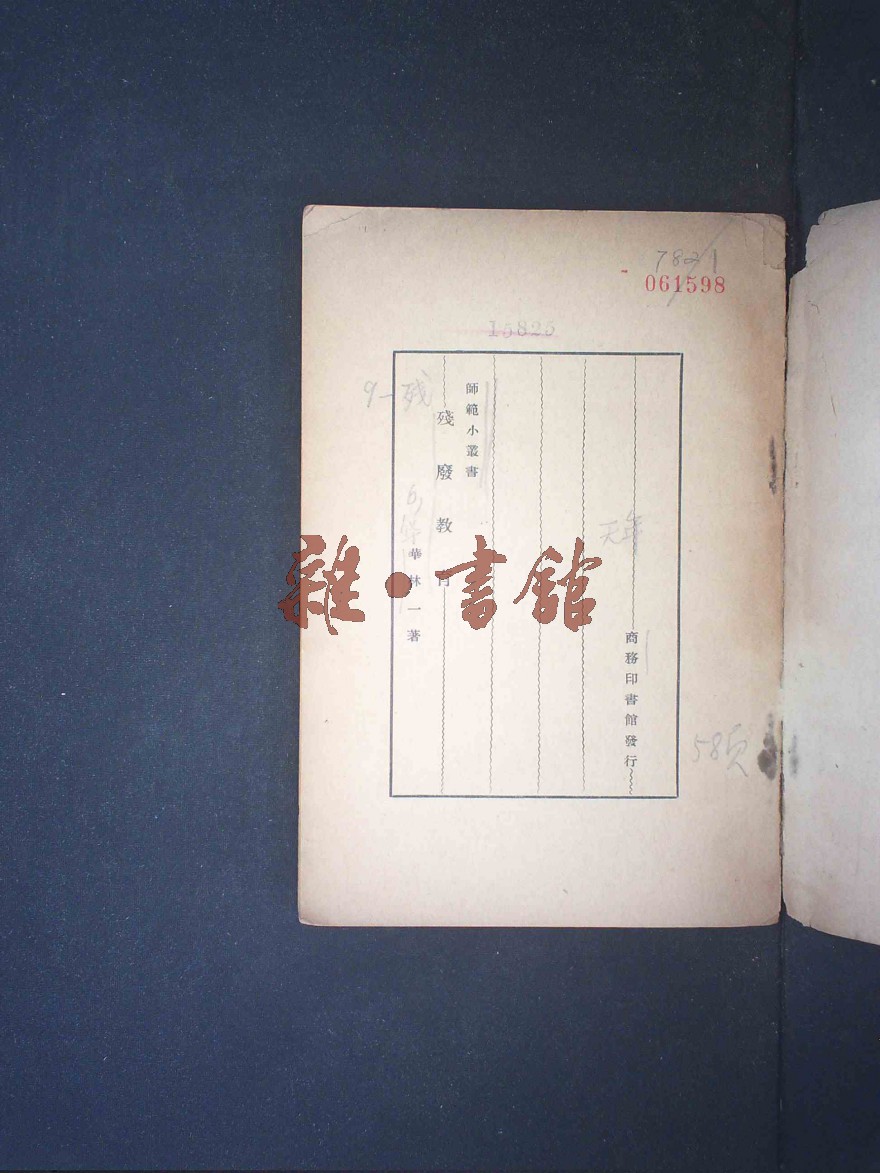 7821
061598
15825
師範小叢書
殘廢教育
華林一著
商務印書館發行
9-残
无年
58页
雜·書館